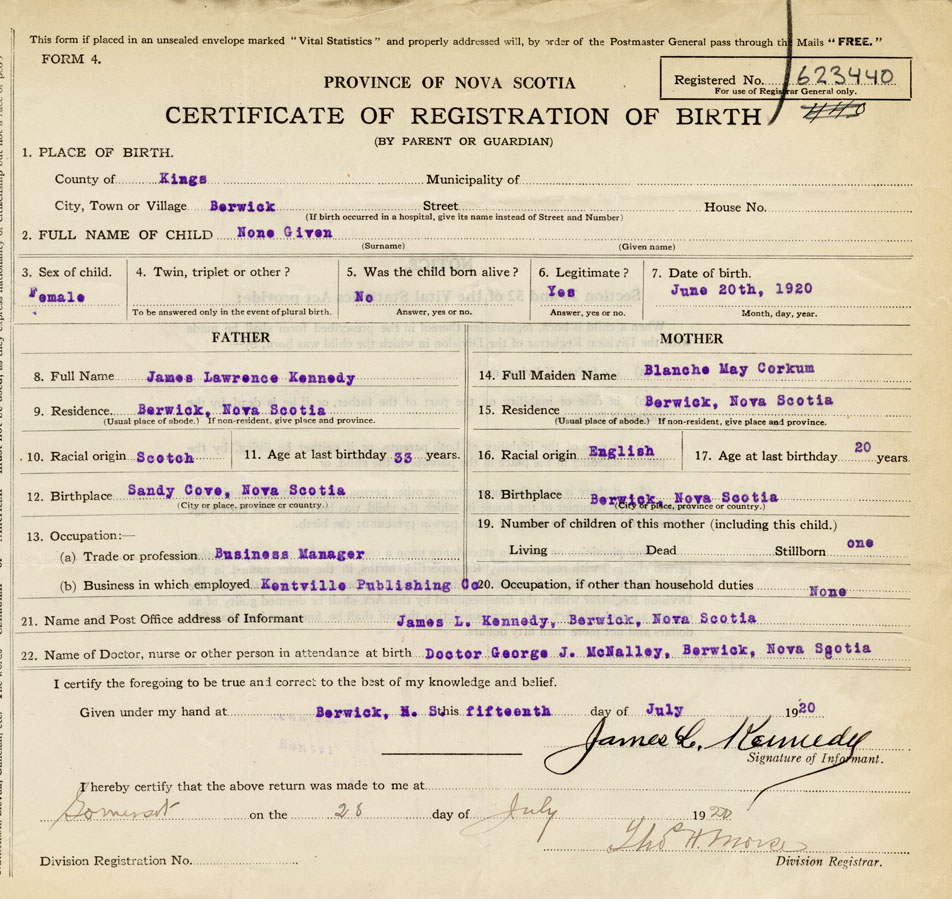 This form if placed in an unsealed envelope marked "Vital Statistics" and properly addressed will, by order of the Postmaster General pass through the Mails "FREE."
FORM 4.
Registered No. 623440
For use of Registrar General only.
PROVINCE OF NOVA SCOTIA
CERTIFICATE OF REGISTRATION OF BIRTH
(BY PARENT OR GUARDIAN)
1. PLACE OF BIRTH.
County of Kings Municipality of
City, Town or Village Berwick Street House No.
(If birth occurred in a hospital, give its name instead of Street and Number)
2. FULL NAME OF CHILD None Given
(Surname) (Given name)
3. Sex of child. 4. Twin, triplet or other? 5. Was the child born alive? 6. Legitimate? 7. Date of birth.
Female No Yes June 20th, 1920
To be answered only in the event of plural birth. Answer, yes or no. Answer, yes or no. Month, day, year.
FATHER
8. Full Name James Lawrence Kennedy
9. Residence. Berwick, Nova Scotia
(Usual place of abode.) If non-resident, give place and province.
10. Racial origin Scotch 11. Age at last birthday 33 years.
12. Birthplace Sandy Cove, Nova Scotia
(City or place, province or country.)
13. Occupation:—
(a) Trade or profession Business Manager
(b) Business in which employed Kentville Publishing Co
MOTHER
14. Full Maiden Name Blanche May Corkum
15. Residence Berwick, Nova Scotia
(Usual place of abode.) If non-resident, give place and province.
16. Racial origin English 17. Age at last birthday 20 years
18. Birthplace Berwick, Nova Scotia
(City or place, province or country.)
19. Number of children of this mother (including this child.)
Living Dead Stillborn one
20. Occupation, if other than household duties None
21. Name and Post Office address of Informant James L. Kennedy, Berwick, Nova Scotia
22. Name of Doctor, nurse or other person in attendance at birth Doctor George J. McNalley, Berwick, Nova Scotia
I certify the foregoing to be true and correct to the best of my knowledge and belief.
Given under my hand at Berwick, N. S. this fifteenth day of July 1920
James L. Kennedy
Signature of Informant.
I hereby certify that the above return was made to me at
Somerset on the 28 day of July 1920
Thos H. Morse
Division Registration No. Division Registrar.